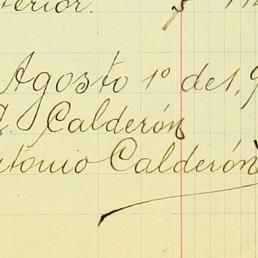 terior.
Agosto 1º de 1,9
Calderón
tonio Calderón